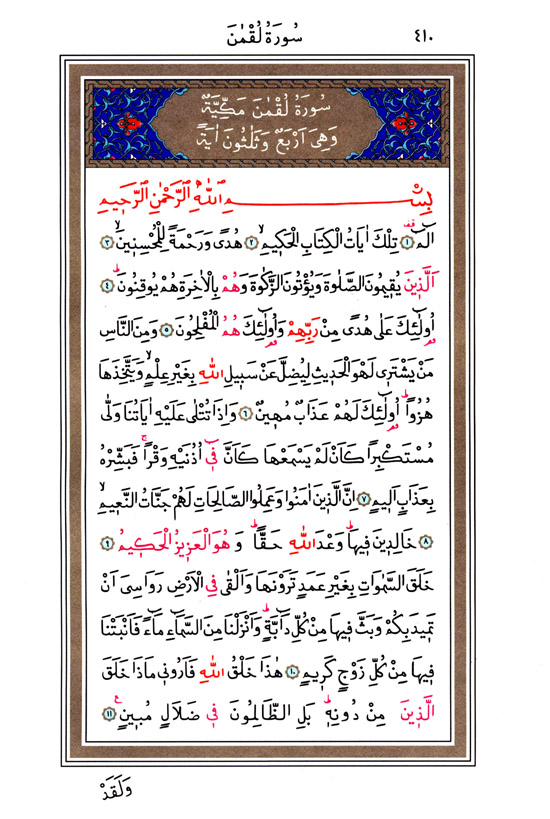 سُورَةُ لُقْمٰنَ ٤١٠
سُورَةُ لُقْمٰنَ مَكِّيَّةٌ
وَهِىَ اَرْبَعٌ وَثَلٰثُونَ اٰيَةً
بِسْمِ اللّٰهِ الرَّحْمٰنِ الرَّحٖيمِ
الٓمٓ ﴿١﴾ تِلْكَ اٰيَاتُ الْكِتَابِ الْحَكٖيمِۙ ﴿٢﴾ هُدًى وَرَحْمَةً لِلْمُحْسِنٖينَۙ ﴿٣﴾
اَلَّذٖينَ يُقٖيمُونَ الصَّلٰوةَ وَيُؤْتُونَ الزَّكٰوةَ وَهُمْ بِالْاٰخِرَةِ هُمْ يُوقِنُونَۜ ﴿٤﴾
اُو۬لٰٓئِكَ عَلٰى هُدًى مِنْ رَبِّهِمْ وَاُو۬لٰٓئِكَ هُمُ الْمُفْلِحُونَ ﴿٥﴾ وَمِنَ النَّاسِ
مَنْ يَشْتَرٖى لَهْوَ الْحَدٖيثِ لِيُضِلَّ عَنْ سَبٖيلِ اللّٰهِ بِغَيْرِ عِلْمٍۙ وَيَتَّخِذَهَا
هُزُوًاۜ اُو۬لٰٓئِكَ لَهُمْ عَذَابٌ مُهٖينٌ ﴿٦﴾ وَاِذَا تُتْلٰى عَلَيْهِ اٰيَاتُنَا وَلّٰى
مُسْتَكْبِرًا كَاَنْ لَمْ يَسْمَعْهَا كَاَنَّ فٖٓى اُذُنَيْهِ وَقْرًاۚ فَبَشِّرْهُ
بِعَذَابٍ اَلٖيمٍ ﴿٧﴾ اِنَّ الَّذٖينَ اٰمَنُوا وَعَمِلُوا الصَّالِحَاتِ لَهُمْ جَنَّاتُ النَّعٖيمِۙ
﴿٨﴾ خَالِدٖينَ فٖيهَاۜ وَعْدَ اللّٰهِ حَقًّاۜ وَهُوَ الْعَزٖيزُ الْحَكٖيمُ ﴿٩﴾
خَلَقَ السَّمٰوَاتِ بِغَيْرِ عَمَدٍ تَرَوْنَهَا وَاَلْقٰى فِى الْاَرْضِ رَوَاسِىَ اَنْ
تَمٖيدَ بِكُمْ وَبَثَّ فٖيهَا مِنْ كُلِّ دَٓابَّةٍۜ وَاَنْزَلْنَا مِنَ السَّمَٓاءِ مَٓاءً فَاَنْبَتْنَا
فٖيهَا مِنْ كُلِّ زَوْجٍ كَرٖيمٍ ﴿١٠﴾ هٰذَا خَلْقُ اللّٰهِ فَاَرُونٖى مَاذَا خَلَقَ
الَّذٖينَ مِنْ دُونِهٖۜ بَلِ الظَّالِمُونَ فٖى ضَلَالٍ مُبٖينٍ ﴿١١﴾
وَلَقَدْ